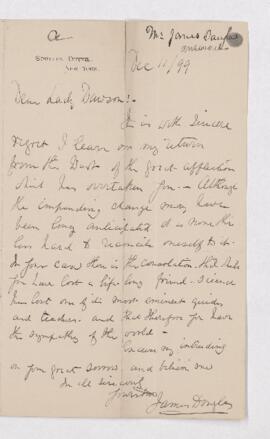 Mr James Douglas
answered
SPUYTEN DUYVIL
NEW YORK.
Dec 11/99
Dear Lady Dawson:-
It is with Sincere
regret I learn on my return
from the West of the great affliction
which has overtaken you - Although
the impending change may have
been long anticipated it is none the
less hard to reconcile oneself to it -
In your case there is the consolation that while
you have lost a life long friend - Science
has lost one of its most eminent guides
and teachers and that therefore you have
the sympathy of the world -
Excuse my intruding
on your great sorrow and believe me
In all sincerity
Yours
James Douglas